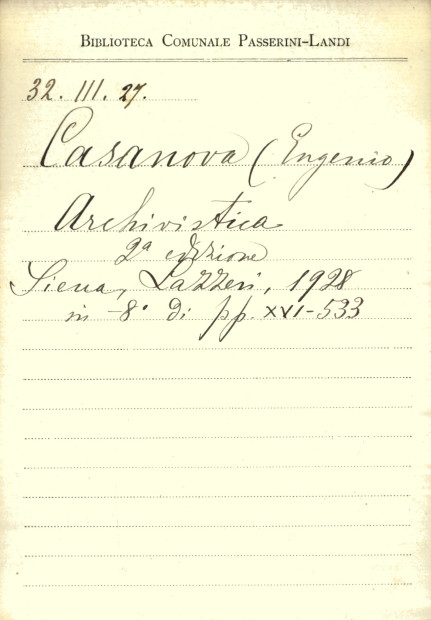 BIBLIOTECA COMUNALE PASSERINI-LANDI
32. III. 27.
Casanova (Eugenio)
Archivistica
2ª edizione
Siena, Lazzeri, 1928
in-8° di pp. XVI-533